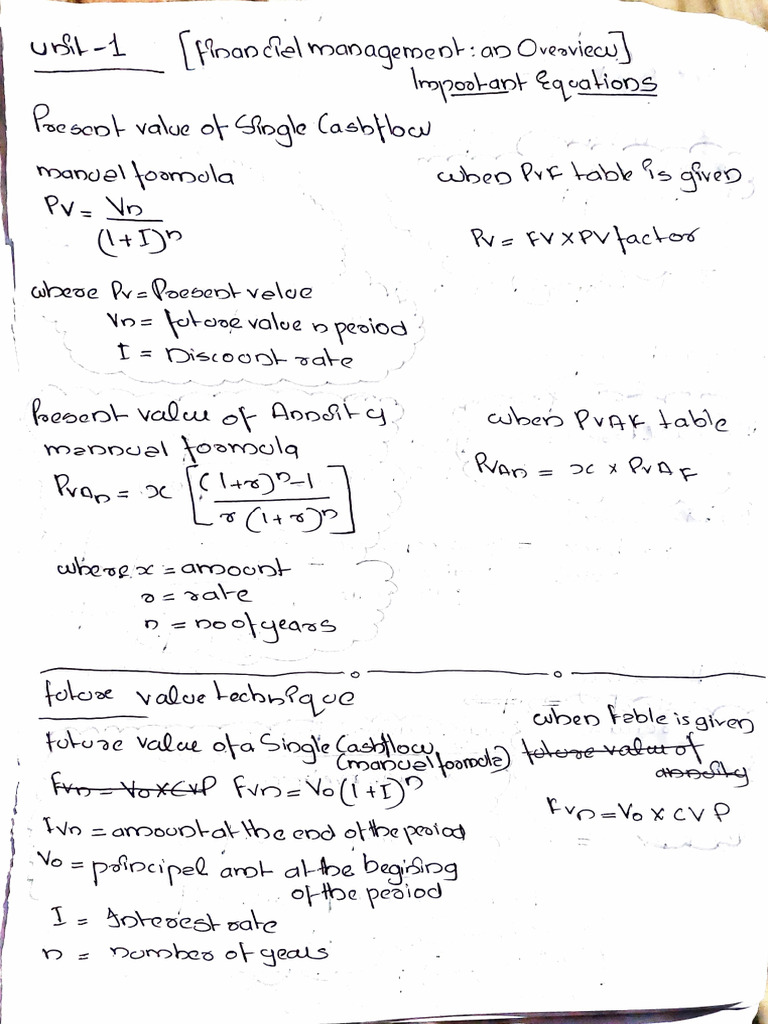 Unit-1 [financial management: an Overview]
Important Equations
Present value of Single Cashflow
manual formula
PV = Vn / (1+I)^n
when PVF table is given
PV = FV X PV factor
where PV = Present value
Vn = future value n period
I = Discount rate
Present value of Annuity
mannual formula
PVAn = x [((1+r)^n - 1) / (r (1+r)^n)]
when PVAF table
PVAn = x x PVAF
where x = amount
r = rate
n = no of years
future value technique
future value of a Single Cashflow
(manual formula)
when table is given
future value of
annuity
Fvn = Vo X CVP FVn = Vo (1+I)^n
FVn = Vo X CVP
FVn = amount at the end of the period
Vo = principal amt at the begining
of the period
I = Interest rate
n = number of years